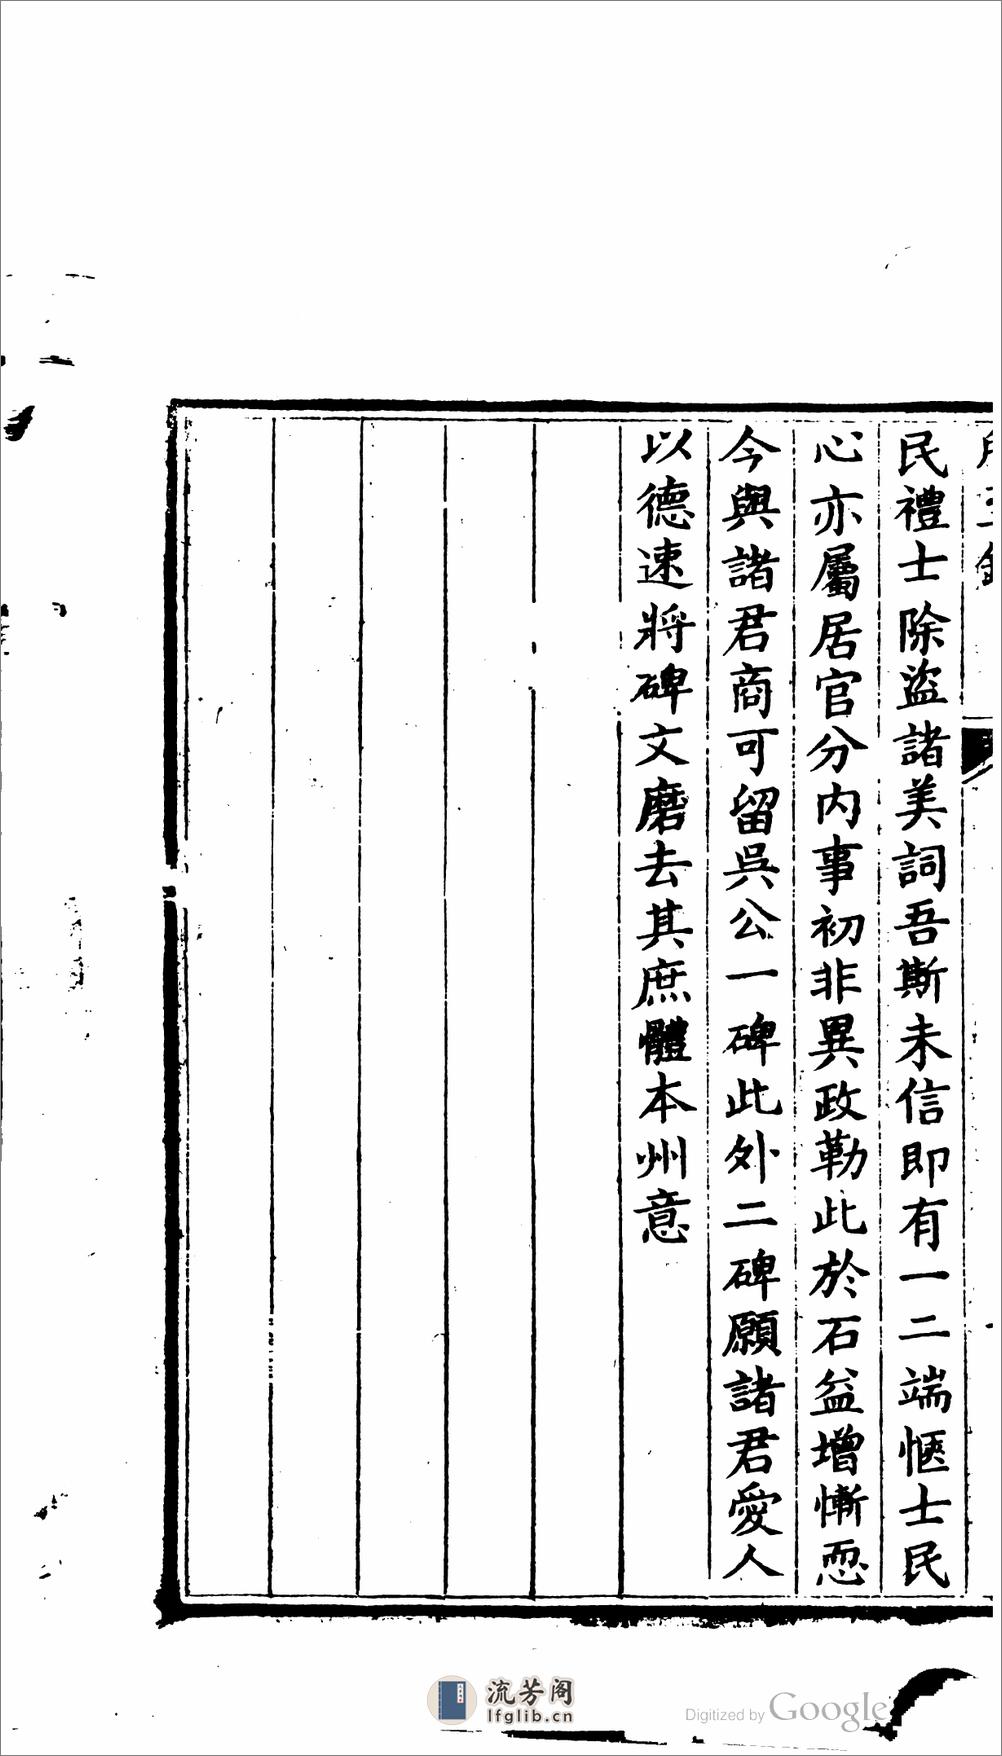 民禮士除盜諸美詞吾斯未信即有一二端愜士民
心亦屬居官分内事初非異政勒此於石益增慚恧
今與諸君商可留吳公一碑此外二碑願諸君愛人
以德速將碑文磨去其庶體本州意
流芳阁
lfglib.cn
Digitized by Google